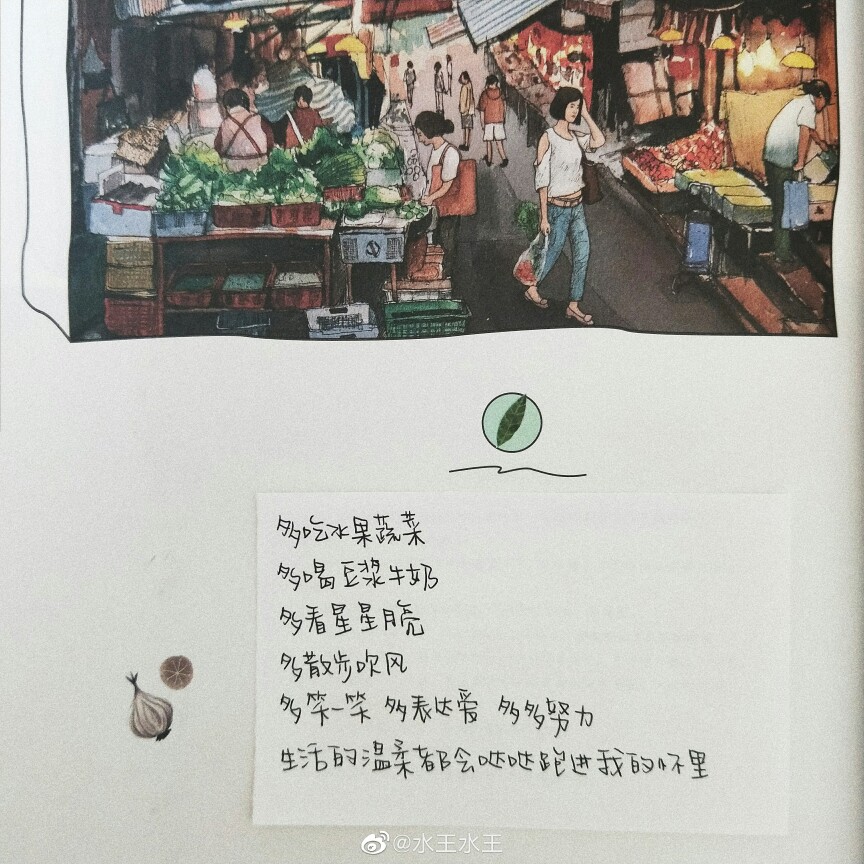 多吃水果蔬菜
多喝豆浆牛奶
多看星星月亮
多散步吹风
多笑一笑 多表达爱 多多努力
生活的温柔都会哒哒跑进我的怀里
@水王水王